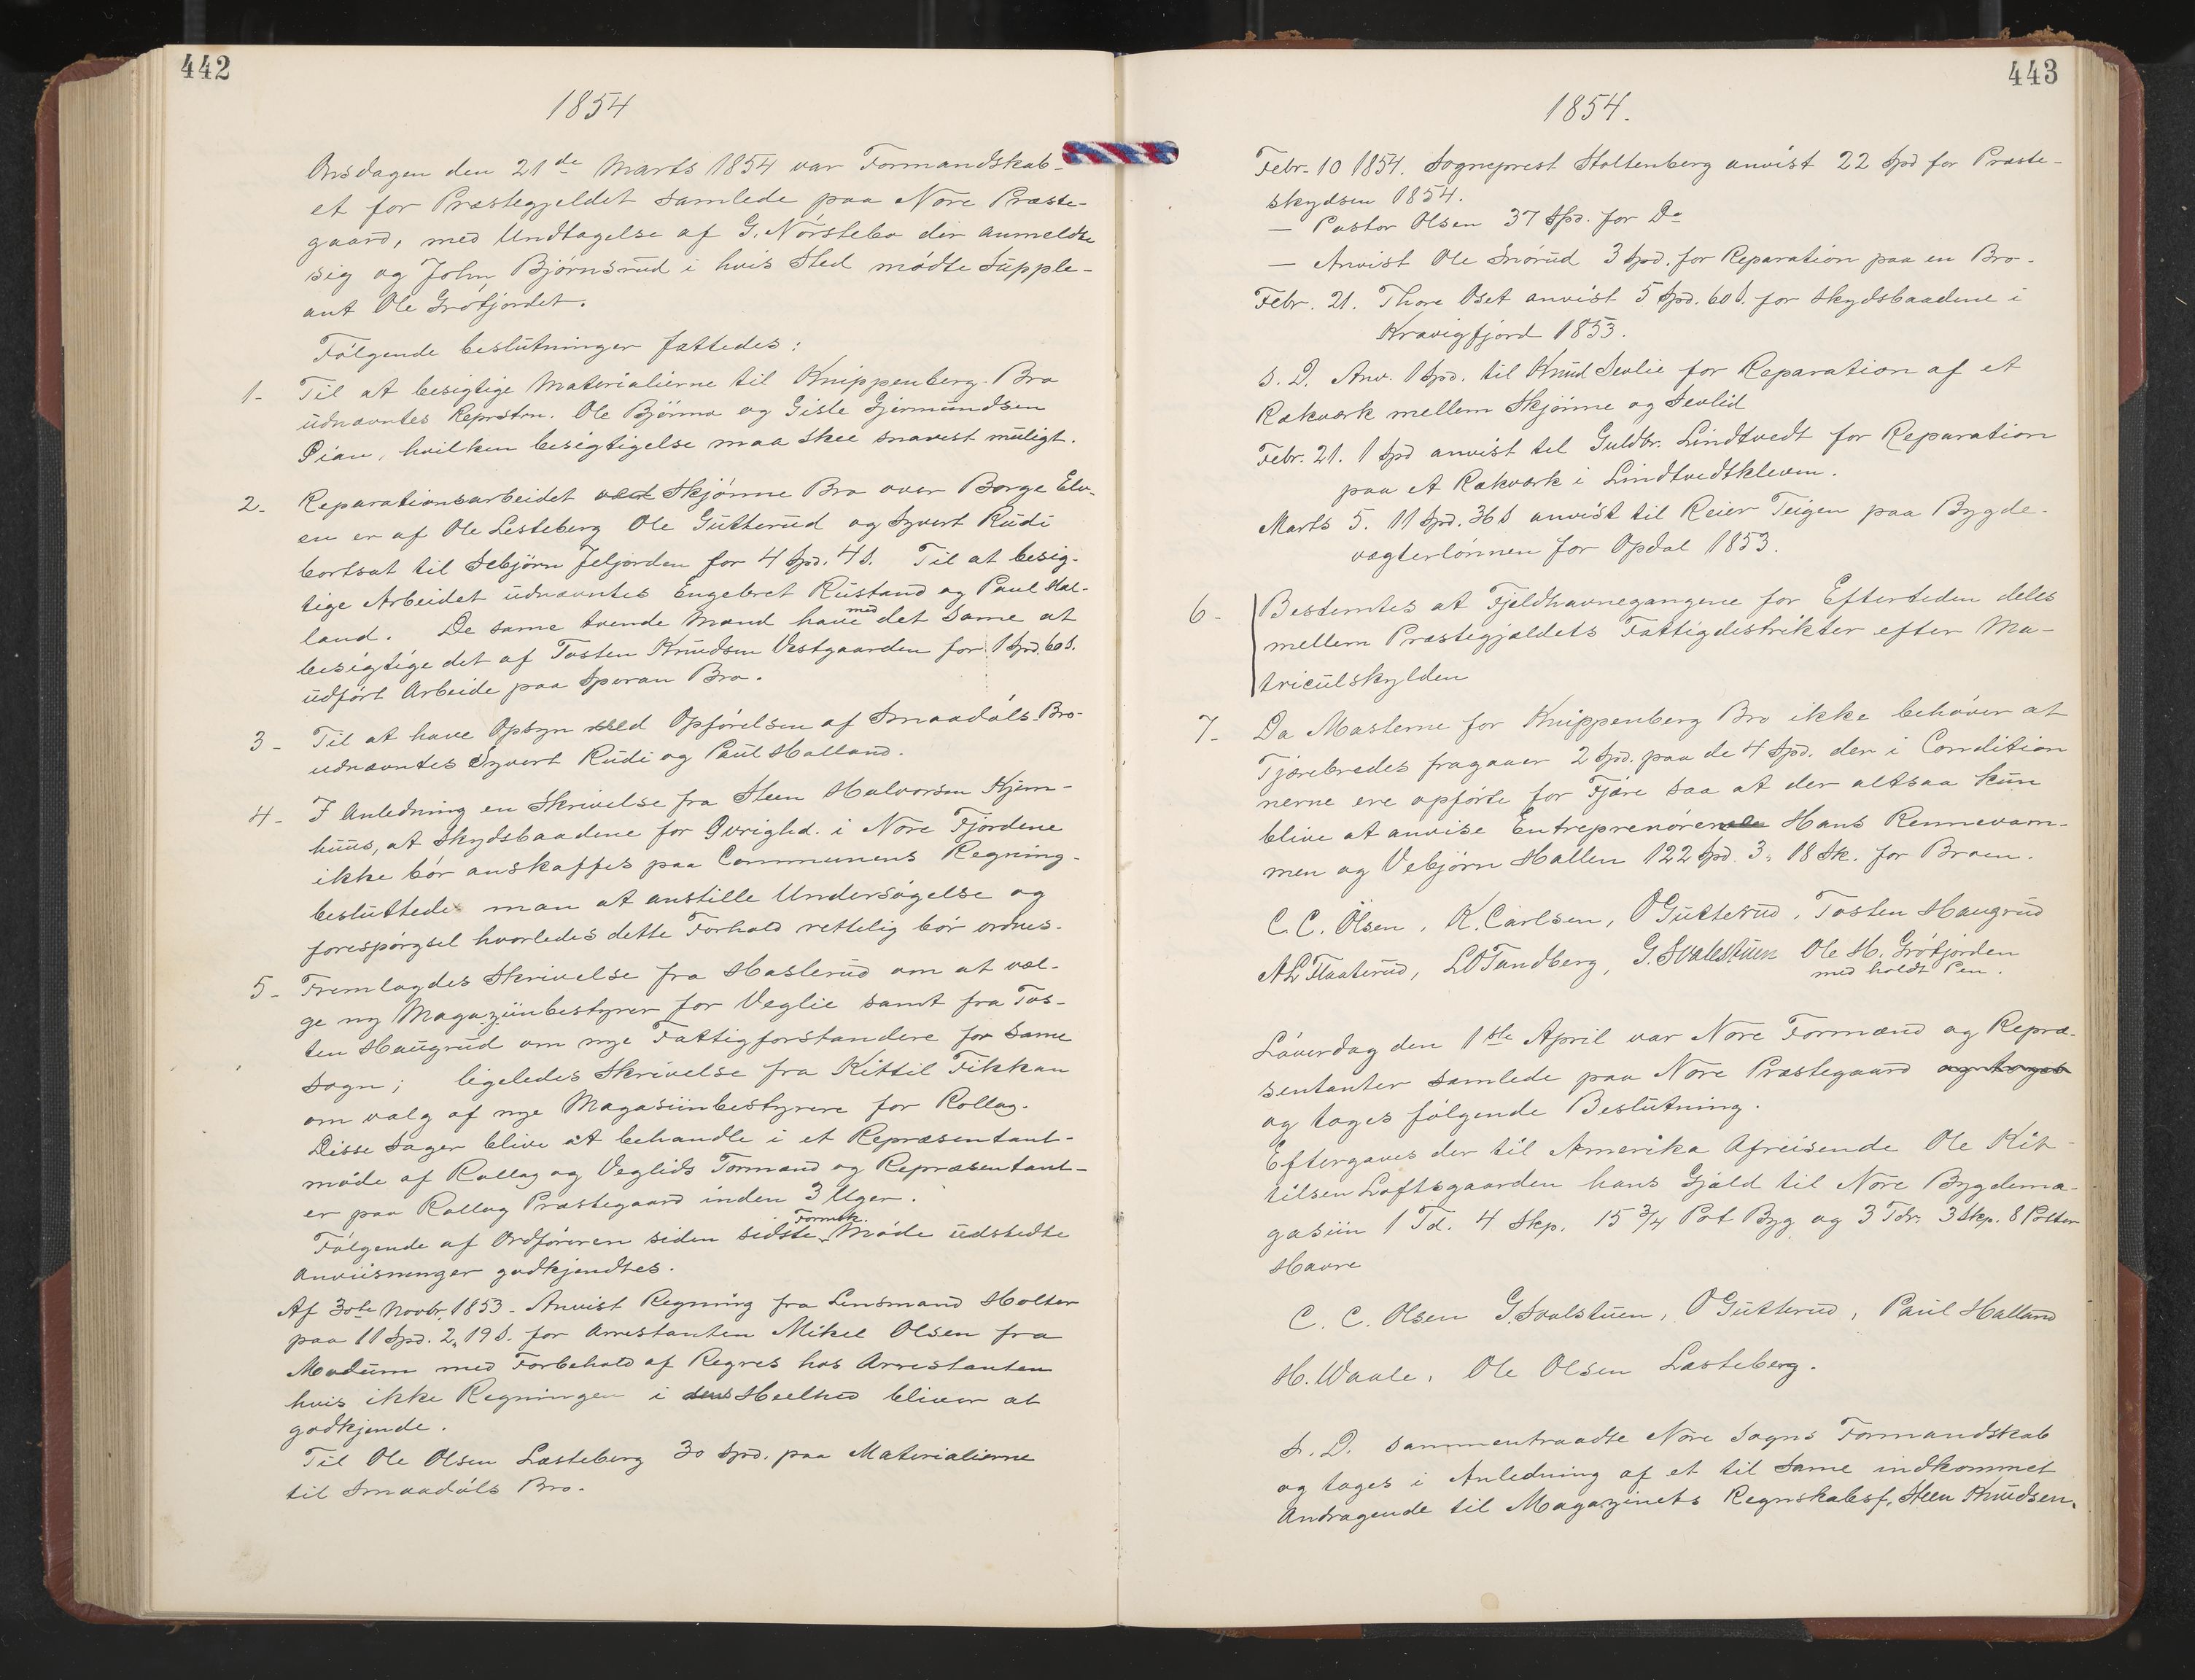 442
1854
Onsdagen den 21de Marts 1854 var Formandskab-
et for Præstegjeldet samlede paa Nore Præste-
gaard, med Undtagelse af G. Nørstebø der anmeldte
sig og John Bjørnsrud i hvis Sted mødte Supple-
ant Ole Grøtjordet.
Følgende beslutninger fattedes:
1- Til at besigtige Materialierne til Knippenberg Bro
udnævntes Reprstrn. Ole Bjönnø og Gisle Gjermundsen
Pian, hvilken besigtigelse maa skee snarest muligt.
2- Reparationsarbeidet ved Skjønne Bro over Borge Elv-
en er af Ole Lesteberg Ole Gutterud og Syvert Rudi
bortsat til Sebjörn Jeljorden for 4 Spd. 4 s. Til at besig-
tige Arbeidet udnævntes Engebret Rustand og Paul Hal-
land. De same tvende Mænd have med det same at
besigtige det af Tosten Knudsen Vestgaarden for 1 Spd. 60 s.
udført Arbeide paa Speran Bro.
3- Til at have Opsyn ved Opförelsen af Smaadøls Bro
udnævntes Syvert Rudi og Paul Halland.
4- I Anledning en Skrivelse fra Steen Halvorsen Kjem-
huus, at Skydsbaadene for Øvrighd. i Nore Fjordene
ikke bör anskaffes paa Communens Regning
besluttede man at anstille Undersøgelse og
forespørgsel hvorledes dette Forhold rettelig bör ordnes.
5- Fremlagdes Skrivelse fra Haslerud om at væl-
ge ny Magaziinbestyrer for Veglie samt fra Tos-
ten Haugrud om nye Fattigforstandere for same
Sogn; ligeledes Skrivelse fra Kittil Fikkan
om valg af nye Magasiinbestyrere for Rollag.
Disse sager blive at behandle i et Repræsentant-
møde af Rollag og Veglids Formænd og Repræsentant-
er paa Rollag Præstegaard inden 3 Uger.
Følgende af Ordføreren siden sidste Formsk. Møde udstedte
Anviisninger godkjendtes.
Af 30te Novbr. 1853 - Anvist Regning fra Lensmand Holter
paa 11 Spd. 2, 19 s. for Arrestanten Mikel Olsen fra
Modum med Forbehold af Regres hos Arrestanten
hvis ikke Regningen i dens Heelhed bliver at
godkjende.
Til Ole Olsen Læsteberg 30 Spd. paa Materialierne
til Smaadøls Bro.
443
1854.
Febr. 10 1854. Sogneprest Stoltenberg anvist 22 Spd for Præste-
skydsen 1854.
— Pastor Olsen 37 Spd. for Do
— Anvist Ole Snörud 3 Spd. for Reparation paa en Bro.
Febr. 21. Thore Oset anvist 5 Spd. 60 s. for Skydsbaadene i
Kravigfjord 1853.
S. D. Anv. 1 Spd. til Knud Sevlie for Reparation af et
Rækværk mellem Skjönne og Sevlid
Febr. 21. 1 Spd anvist til Guldbr. Lindtvedt for Reparation
paa et Rækværk i Lindtvedtkleven.
Marts 5. 11 Spd. 36 s anvist til Reier Teigen paa Bygde-
vægterlønnen for Opdal 1853.
6- Bestemtes at Fjeldhavnegangene for Eftertiden deles
mellem Præstegjældets Fattigdistrikter efter Ma-
triculskylden
7- Da Masterne for Knippenberg Bro ikke behöver at
Tjærebredes fragaaer 2 Spd. paa de 4 Spd. der i Condition
nerne ere opförte for Tjære saa at der altsaa kun
blive at anvise Entreprenörerne Hans Rennevam-
men og Vebjörn Hallen 122 Spd. 3, 18 Sk. for Broen.
C. C. Olsen, K. Carlsen, O Gutterud, Tosten Haugrud
A L Flaaterud, L O Tandberg, G. Svalestuen Ole H. Grötjorden
med holdt Pen.
Løverdag den 1ste April var Nore Formænd og Repræ-
sentanter samlede paa Nore Præstegaard og toges
og toges følgende Beslutning.
Eftergaves der til Amerika Afreisende Ole Kit-
tilsen Loftsgaarden hans Gjæld til Nore Bygdema-
gasiin 1 Td. 4 Skp. 15 3/4 Pot Byg og 3 Tdr. 3 Skp. 8 Potter
Havre
C. C. Olsen G. Svalstuen, O Gutterud, Paul Halland
H. Waale, Ole Olsen Læsteberg.
S. D. sammentraadte Nore Sogns Formandskab
og toges i Anledning af et til same indkommet
Andragende til Magazinets Regnskabsf. Steen Knudsen,